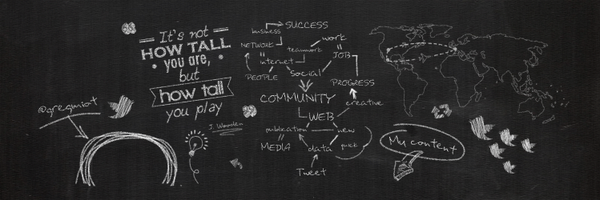 It's not
HOW TALL
you are,
but
how tall
you play
J. Wooden
@gregmiot
SUCCESS
business
work
NETWORK
teamwork
JOB
internet
Social
PEOPLE
PROGRESS
COMMUNITY
creative
WEB
publication
new
MEDIA
data
Tweet
My content